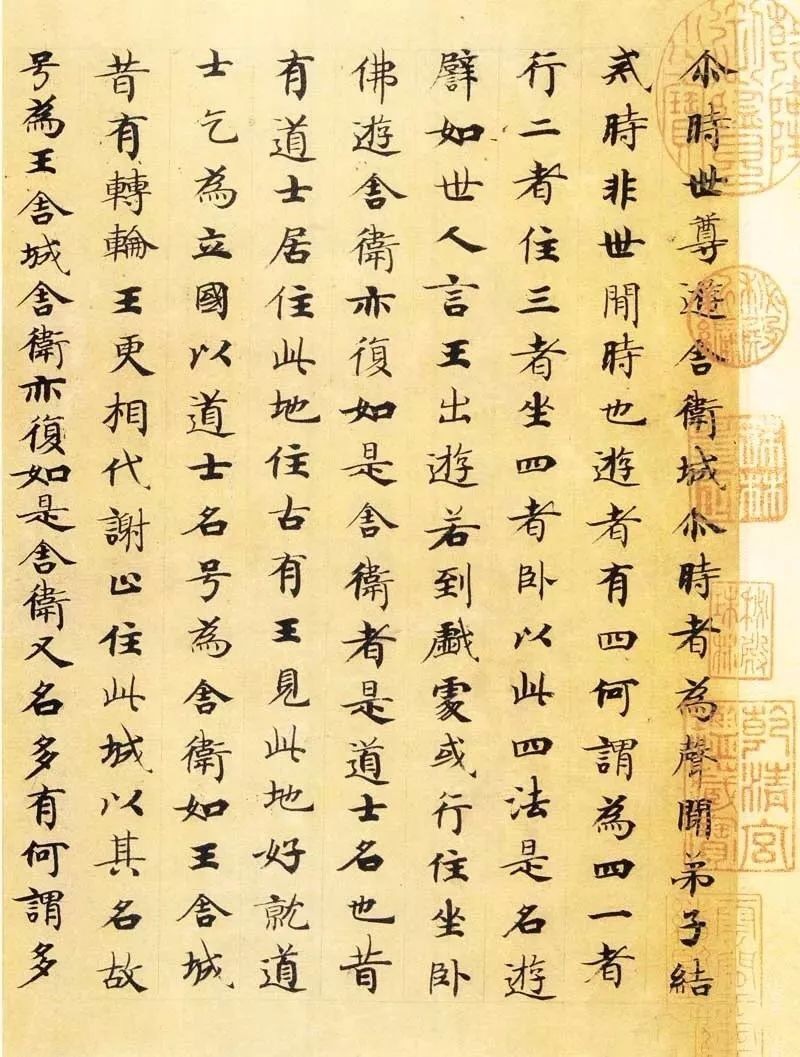 尒時世尊遊舍衛城尒時者為聲聞弟子結
戒時非世間時也遊者有四何謂為四一者
行二者住三者坐四者卧以此四法是名遊
譬如世人言王出遊若到戲處或行住坐卧
佛遊舍衛亦復如是舍衛者是道士名也昔
有道士居住此地住古有王見此地好就道
士乞為立國以道士名号為舍衛如王舍城
昔有轉輪王更相代謝止住此城以其名故
号為王舍城舍衛亦復如是舍衛又名多有何謂多
秘殿新編
珠林重定
秘殿珠林
乾清宮鑒藏寶